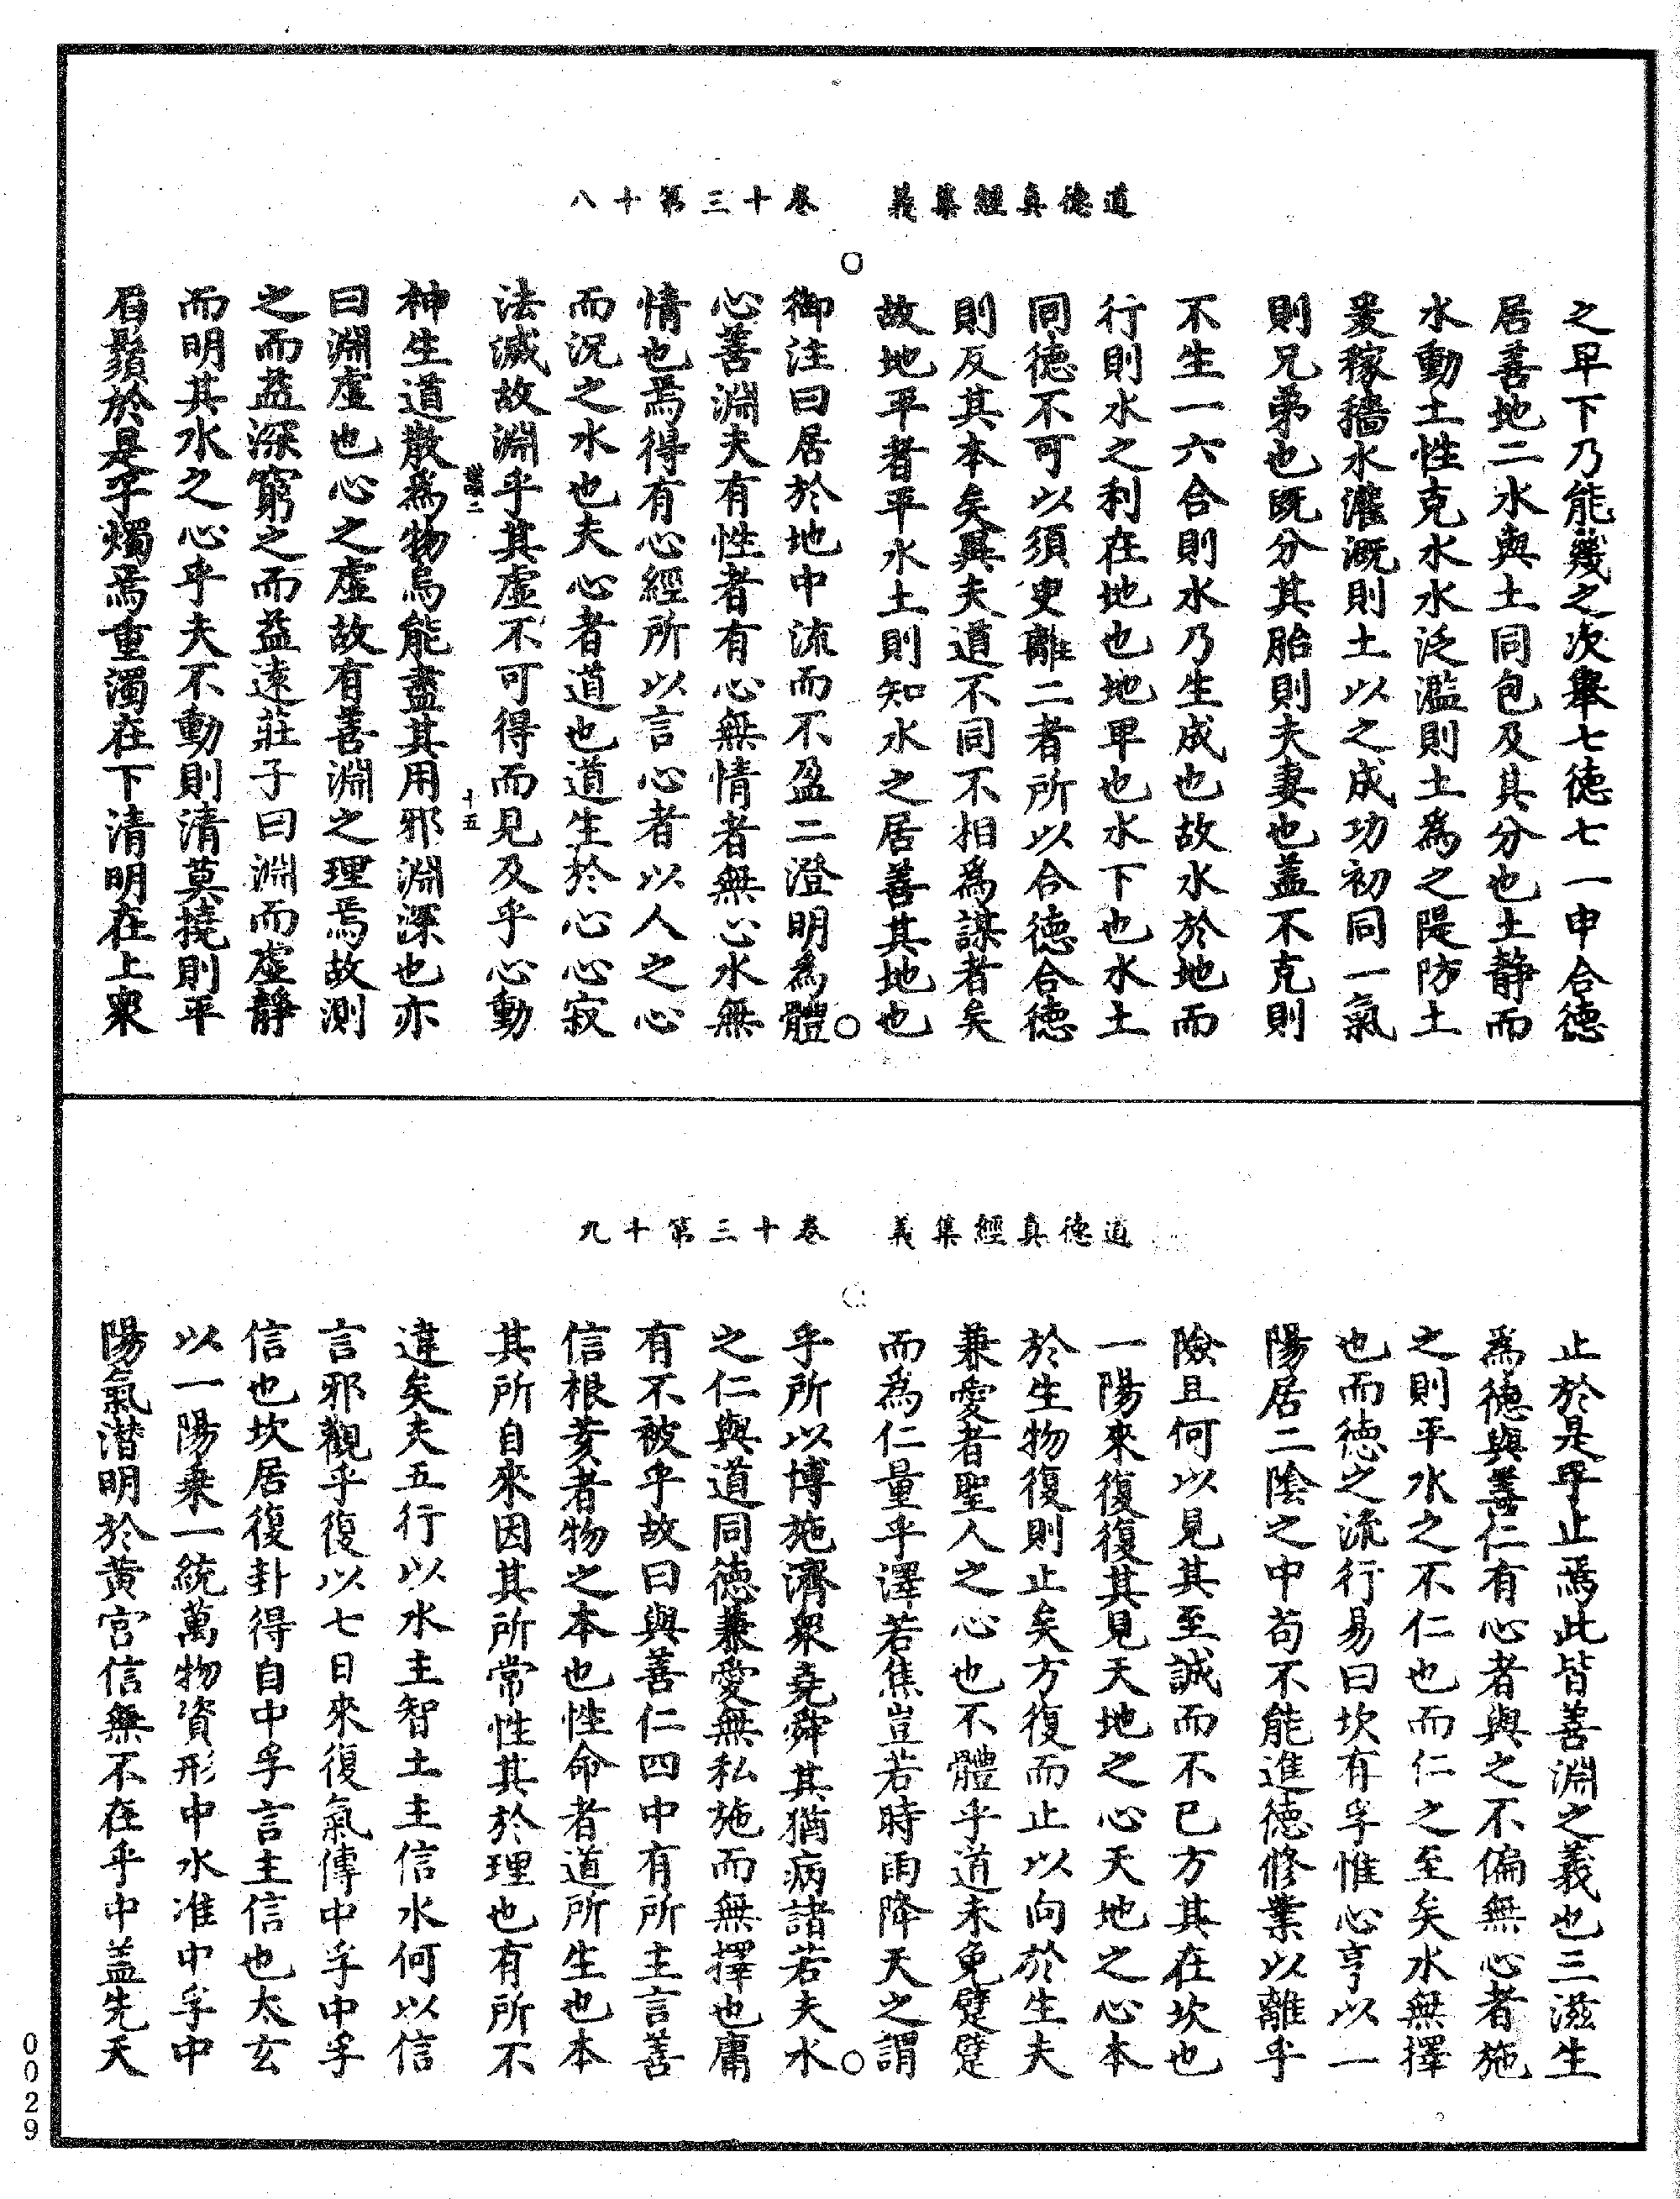 道德真經集義　卷十三第十八
之卑下乃能幾之次舉七德七一申合德
居善地二水與土同包及其分也土靜而
水動土性克水水泛濫則土為之隄防土
爰稼穡水灌溉則土以之成功初同一氣
則兄弟也既分其胎則夫妻也蓋不克則
不生一六合則水乃生成也故水於地而
行則水之利在地也地卑也水下也水土
同德不可以須臾離二者所以合德合德
則反其本矣與夫道不同不相為謀者矣
故地平者平水土則知水之居善其地也
御注曰居於地中流而不盈二澄明為體
心善淵夫有性者有心無情者無心水無
情也焉得有心經所以言心者以人之心
而況之水也夫心者道也道生於心心寂
法滅故淵乎其虛不可得而見及乎心動
十五
神生道散為物烏能盡其用邪淵深也亦
曰淵虛也心之虛故有善淵之理焉故測
之而益深窮之而益遠莊子曰淵而虛靜
而明其水之心乎夫不動則清莫撓則平
眉鬚於是乎燭焉重濁在下清明在上衆
道德真經集義　卷十三第十九
止於是乎止焉此皆善淵之義也三滋生
為德與善仁有心者與之不偏無心者施
之則平水之不仁也而仁之至矣水無擇
也而德之流行易曰坎有孚惟心亨以一
陽居二陰之中苟不能進德修業以離乎
險且何以見其至誠而不已方其在坎也
一陽來復復其見天地之心天地之心本
於生物復則止矣方復而止以向於生夫
兼愛者聖人之心也不體乎道未免躄躄
而為仁量乎澤若焦豈若時雨降天之謂
乎所以博施濟衆堯舜其猶病諸若夫水
之仁與道同德兼愛無私施而無擇也庸
有不被乎故曰與善仁四中有所主言善
信根荄者物之本也性命者道所生也本
其所自來因其所常性其於理也有所不
違矣夫五行以水主智土主信水何以信
言邪觀乎復以七日來復氣傳中孚中孚
信也坎居復卦得自中孚言主信也太玄
以一陽乘一統萬物資形中水准中孚中
陽氣潛明於黃宮信無不在乎中蓋先天
0029